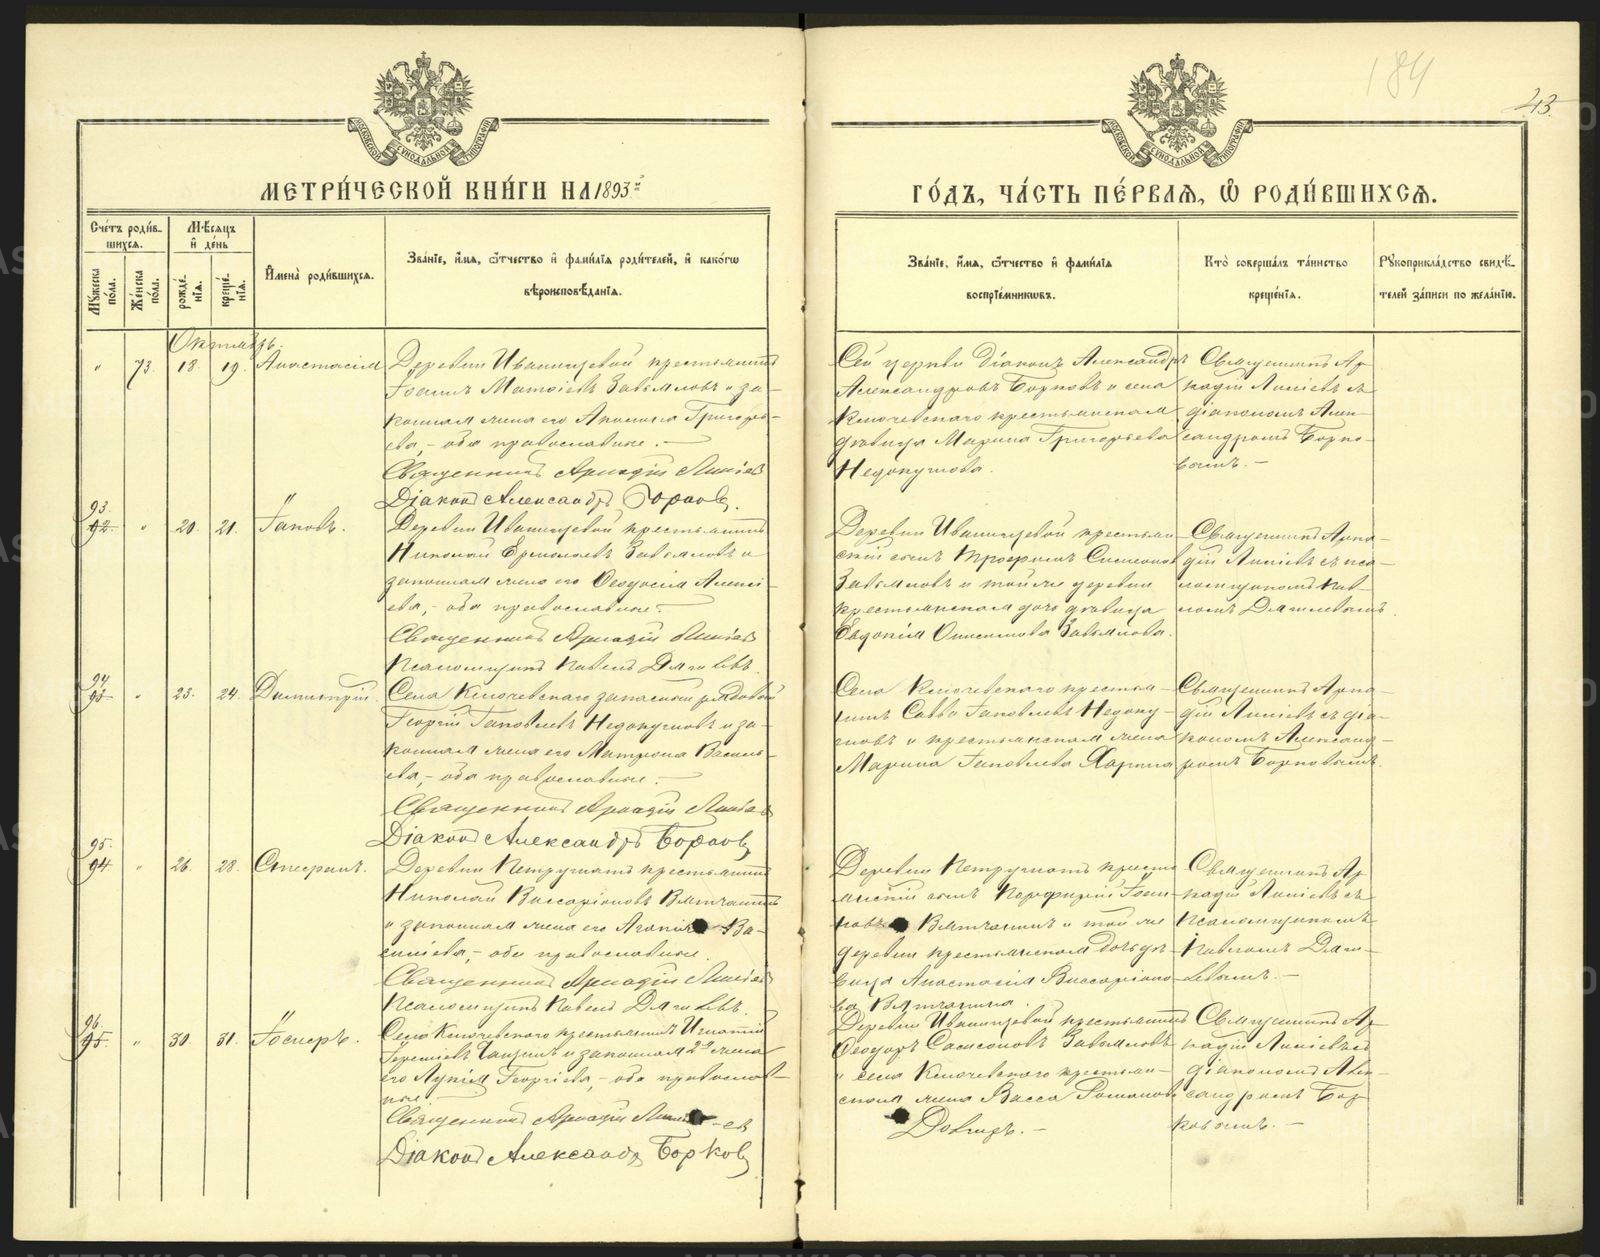 184
43
МЕТРИ́ЧЕСКОЙ КНИ́ГИ НА 1893й
ГО́ДЪ, ЧА́СТЬ ПЕ́РВАѦ, Ѡ РОДИ́ВШИХСѦ.
Сче́тъ роди́в-
шихсѧ.
Мѣ́сѧцъ
и҆ де́нь
И҆мена̀ роди́вшихсѧ.
Зва́нїе, и҆́мѧ, ѻ҆́тчество и҆ фами́лїѧ роди́телей, и҆ како́гѡ
вѣроисповѣ́данїѧ.
Мꙋ́жеска по́ла.
Же́нска по́ла.
рожде́-нїѧ.
креще́-нїѧ.
Зва́нїе, и҆́мѧ, ѻ҆́тчество и҆ фами́лїѧ
воспрїе́мникѡвъ.
Кто̀ соверша́лъ та́инство
креще́нїѧ.
Рꙋкоприкла́дство свидѣ́-
телей за́писи по жела́нїю.
Октябрь.
" 73. 18. 19. Анастасія
Деревни Иванищевой крестьянинъ
Іоаннъ Матѳіевъ Завьяловъ и за-
конная жена его Григорь-
ева,- оба православные.-
Священникъ Аркадій
Діаконъ Александръ Борковъ.
Сей церкви діаконъ Александръ
Александровъ Борковъ и села
Ключевскаго крестьянская
дѣвица Марина Григорьева
Недокушева.
Священникъ Ар-
кадій съ
діакономъ Алек-
сандромъ Борко-
вымъ.-
93.
92. " 20. 21. Іаковъ.
Деревни Иванищевой крестьянинъ
Николай Ермолаевъ Завьяловъ и
законная жена его Ѳеодосія Алексі-
ева,- оба православные.-
Священникъ Аркадій
Псаломщикъ Павелъ
Деревни Иванищевой крестьян-
скій сынъ Трофимъ Симеоновъ
Завьяловъ и той же деревни
крестьянская дочь дѣвица
Евдокія Онисимова Завьялова.
Священникъ Арка-
дій съ пса-
ломщикомъ Пав-
ломъ
94.
93. " 23. 24. Димитрій.
Села Ключевскаго запасный рядовой
Георгій Іаковлевъ Недокушевъ и за-
конная жена его Матрона Василь-
ева,- оба православные.-
Священникъ Аркадій
Діаконъ Александръ Борковъ
Села Ключевскаго крестья-
нинъ Савва Іаковлевъ Недоку-
шевъ и крестьянская жена
Марина Іаковлева
Священникъ Арка-
дій съ діа-
кономъ Александ-
ромъ Борковымъ.
95.
94. " 26. 28. Стефанъ.
Деревни крестьянинъ
Николай Виссаріоновъ Вятчанинъ
и законная жена его Ва-
сильева,- оба православные.
Священникъ Аркадій
Псаломщикъ Павелъ
Деревни кресть-
янскій сынъ Порфирій Іоан-
новъ Вятчанинъ и той же
деревни крестьянская дочь дѣ-
вица Анастасія Виссаріоно-
ва Вятчанина.
Священникъ Ар-
кадій съ
псаломщикомъ
Павломъ
96.
95. " 30. 31. Іосифъ.
Села Ключевскаго крестьянинъ Игнатій
и законная 2я жена
его Лукія Георгіева,- оба православ-
ные.
Священникъ Аркадій
Діаконъ Александръ Борковъ
Деревни Иванищевой крестьянинъ
Ѳеодоръ Самсоновъ Завьяловъ
и села Ключевскаго крестьян-
ская жена Васса Романова
Священникъ Ар-
кадій съ
діакономъ Алек-
сандромъ Бор-
ковымъ.-